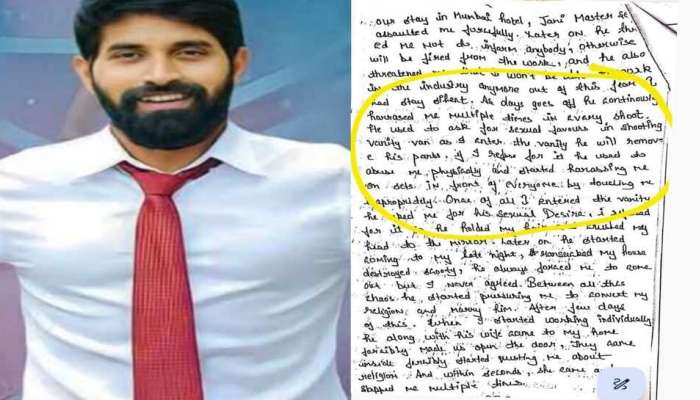 our stay in Mumbai hotel, Jani Master se
assaulted me forcefully. Later on he thr
ed me not do inform anybody, otherwise
will be fired from the works, and he also
threatened
in the industry anymore out of this fear I
had stay silent. As days goes off he continously
harrased me multiple times in every shoot.
He used to ask for sexual favours in shooting
vanity van as I enter the vanity he will remov-
e his pants, if I refuse for is he used to
abuse me physically and started harassing me
on sets in front of everyone by touching me
Once of all I entered the vanity
he me for his Sexual Desire, i
for it he holded my my
head to the mirror. Later on he started
coming to my late night, my house
destroyed scooty, he always forced me to come
out but I never agreed. Between all this
he started pressuring me to convert my
religion and marry him. After few days
of this. When I started working individually
he along with his wife came to my home
forcibly made us open the door, They came
inside forcibly started me about
religion And within seconds, she came
slapped me multiple times